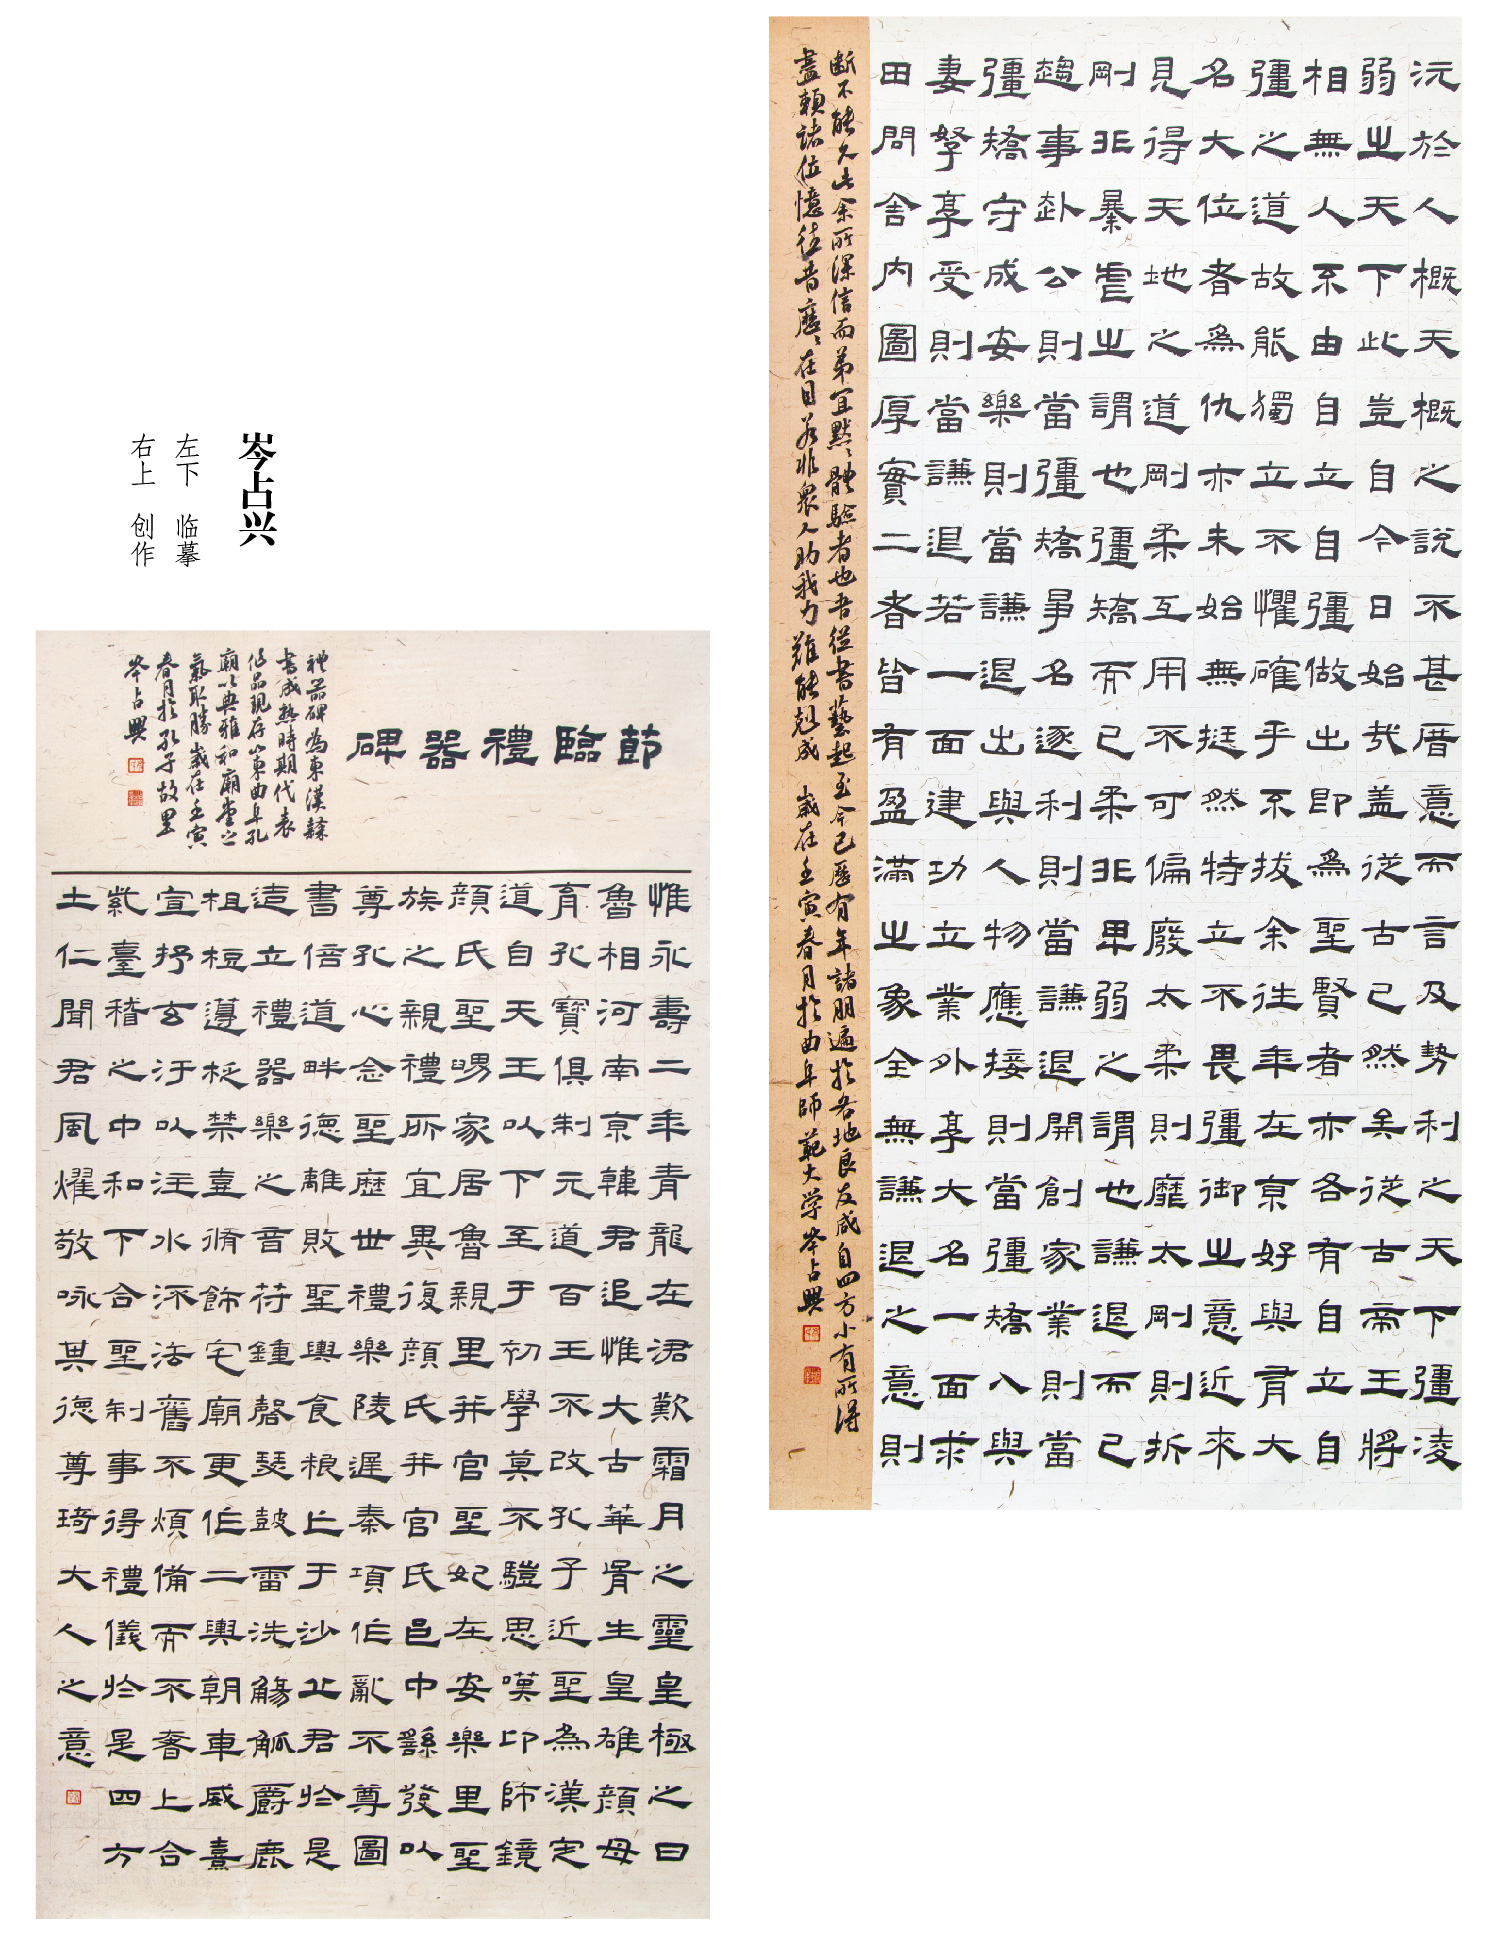 沅於人概天概之說不甚厝意而言及勢利之天下彊凌
弱之天下此豈自今日始哉盖從古已然矣從古帝王將
相無人不由自立自彊做出即為聖賢者亦各有自立自
彊之道故能獨立不懼確乎不拔余往年在京好與有大
名大位者為仇亦未始無挺然特立不畏彊御之意近來
見得天地之道剛柔互用不可偏廢太柔則靡太剛則折
剛非暴虐之謂也彊矯而已柔非卑弱之謂也謙退而已
趨事赴公則當彊矯爭名逐利則當謙退開創家業則當
彊矯守成安樂則當謙退出與人物應接則當彊矯入與
妻孥享受則當謙退若一面建功立業外享大名一面求
田問舍內圖厚實二者皆有盈滿之象全無謙退之意則
斷不能久此余所深信而弟宜默默體驗者也吾從書藝起至今已歷有年諸朋遍於各地良友咸自四方小有所得
盡賴諸位憶往昔歷歷在目若非衆人助我力難能剋成 歲在壬寅春月於曲阜師範大学岑占興
岑占兴
左下 临摹
右上 创作
節臨禮器碑
禮器碑為東漢隸
書成熟時期代表
作品現存山東曲阜孔
廟以典雅和廟堂之
氣取勝歲在壬寅
春月於孔子故里
岑占興
惟永壽二年青龍在涒歎霜月之靈皇極之日
魯相河南京韓君追惟大古華胥生皇雄顏母
育孔寶俱制元道百王不改孔子近聖為漢定
道自天王以下至于初學莫不驥思嘆卬師鏡
顏氏聖舅家居魯親里并官聖妃在安樂里聖
族之親禮所宜異復顏氏并官氏邑中繇發以
尊孔心念聖歷世禮樂陵遲秦項作亂不尊圖
書倍道畔德離敗聖輿食粮亡于沙丘君於是
造立禮器樂之音苻鍾磬瑟鼓雷洗觴觚爵鹿
柤梪籩柉禁壺脩飾宅廟更作二輿朝車威熹
宣抒玄汙以注水流法舊不煩備而不奢上合
紫臺稽之中和下合聖制事得禮儀於是四方
土仁聞君風燿敬咏其德尊琦大人之意